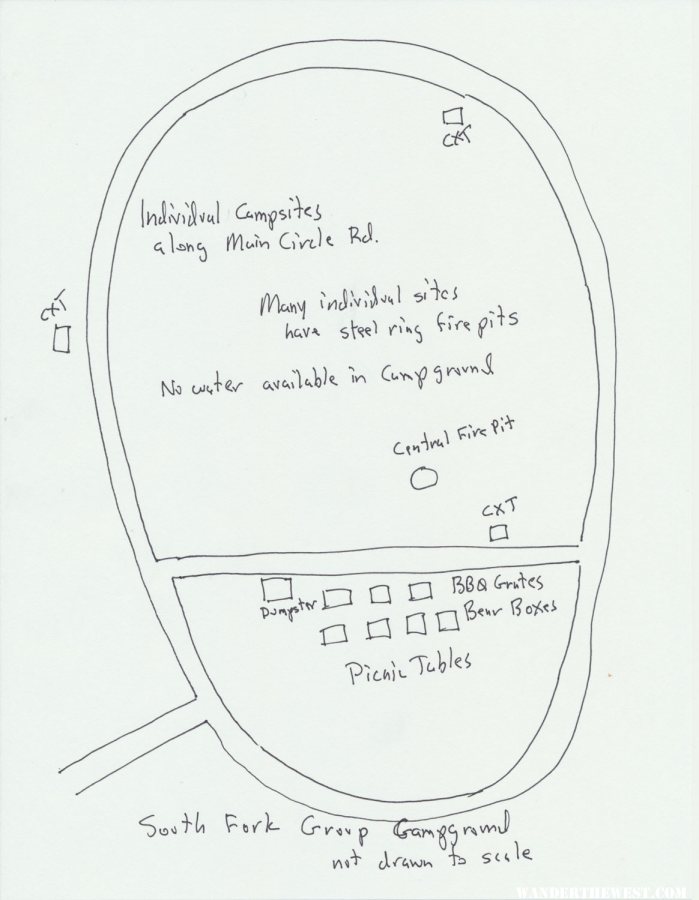 CXT
Individual Campsites
along Main Circle Rd.
CXT
Many individual sites
have steel ring fire pits
No water available in Campground
Central Fire Pit
CXT
Dumpster
BBQ Grates
Bear Boxes
Picnic Tables
South Fork Group Campground
not drawn to scale
WANDERTHEWEST.COM